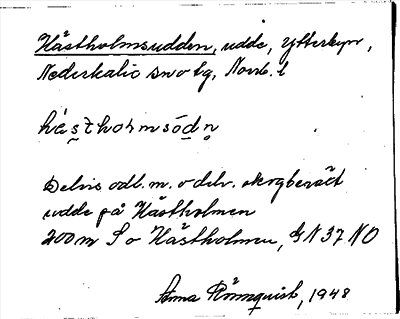 Hästholmsudden, udde, Ytterbyn,
Nederkalix sn o tg, Norrb. l
hästholmsódn
Delvis odl. m. o delv. skogbeväxt
udde på Hästholmen
200 m S o Hästholmen, G N 37 NO
Anna Rönnquist, 1948